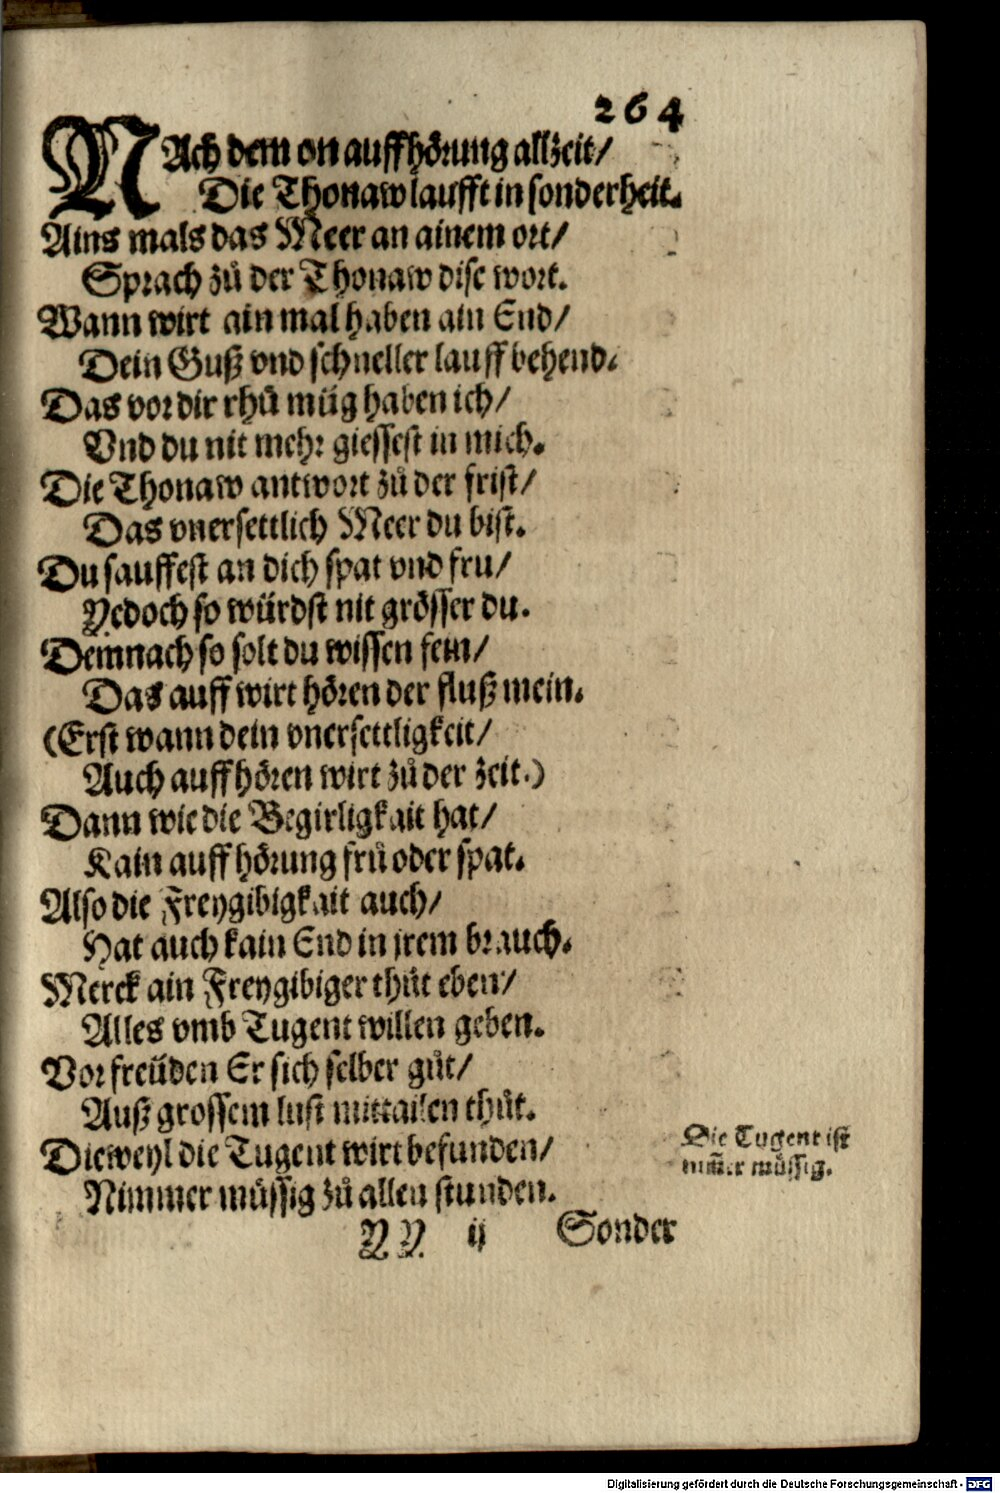 264
NAch dem on auffhörung allzeit/
Die Thonaw laufft in sonderheit.
Ains mals das Meer an ainem ort/
Sprach zů der Thonaw dise wort.
Wann wirt ain mal haben ain End/
Dein Guß vnd schneller lauff behend.
Das vor dir rhů müg haben ich/
Vnd du nit mehr giessest in mich.
Die Thonaw antwort zů der frist/
Das vnersettlich Meer du bist.
Du sauffest an dich spat vnd fru/
Yedoch so würdst nit grösser du.
Demnach so solt du wissen fein/
Das auff wirt hören der fluß mein.
(Erst wann dein vnersettligkeit/
Auch auffhören wirt zů der zeit.)
Dann wie die Begirligkait hat/
Kain auffhörung frů oder spat.
Also die Freygibigkait auch/
Hat auch kain End in jrem brauch.
Merck ain Freygibiger thůt eben/
Alles vmb Tugent willen geben.
Vor freüden Er sich selber gůt/
Auß grossem lust mittailen thůt.
Dieweyl die Tugent wirt befunden/
Nimmer müssig zů allen stunden.
Die Tugent ist
nim̃er müssig.
YY ij Sonder
Digitalisierung gefördert durch die Deutsche Forschungsgemeinschaft - DFG